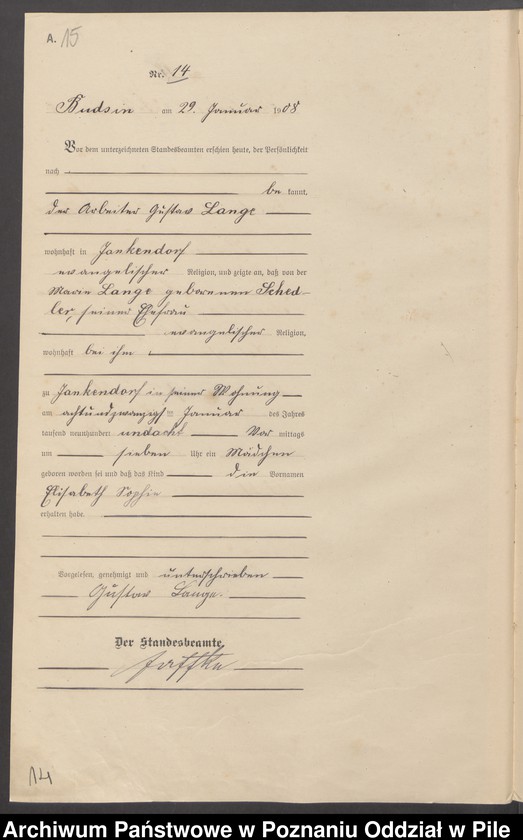 A. 15
Nr. 14
Budsin am 29. Januar 1908
Vor dem unterzeichneten Standesbeamten erschien heute, der Persönlichkeit
nach
be kannt,
der Arbeiter Gustav Lange
wohnhaft in Jankendorf
evangelischer Religion, und zeigte an, daß von der
Marie Lange geborenen Sched-
ler, seiner Ehefrau
evangelischer Religion,
wohnhaft bei ihm
zu Jankendorf in seiner Wohnung
am achtundzwanzigsten Januar des Jahres
tausend neunhundert undacht Vor mittags
um sieben Uhr ein Mädchen
geboren worden sei und daß das Kind die Vornamen
Elisabeth Sophie
erhalten habe.
Vorgelesen, genehmigt und unterschrieben
Gustav Lange.
Der Standesbeamte.
Jaffke
14
Archiwum Państwowe w Poznaniu Oddział w Pile